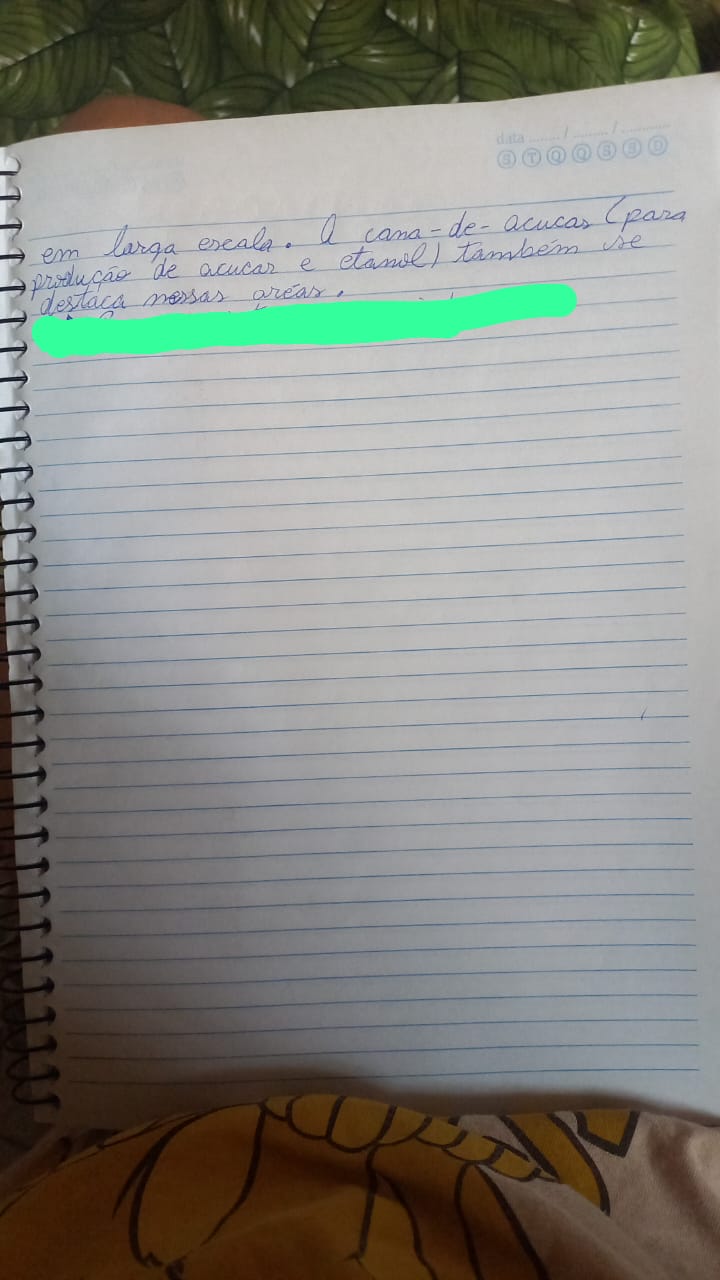 data ....... / ......... / .............
S T Q Q S S D
em larga escala. A cana-de-acucar (para
produção de acucar e etanol) também se
destaca nessas areás.